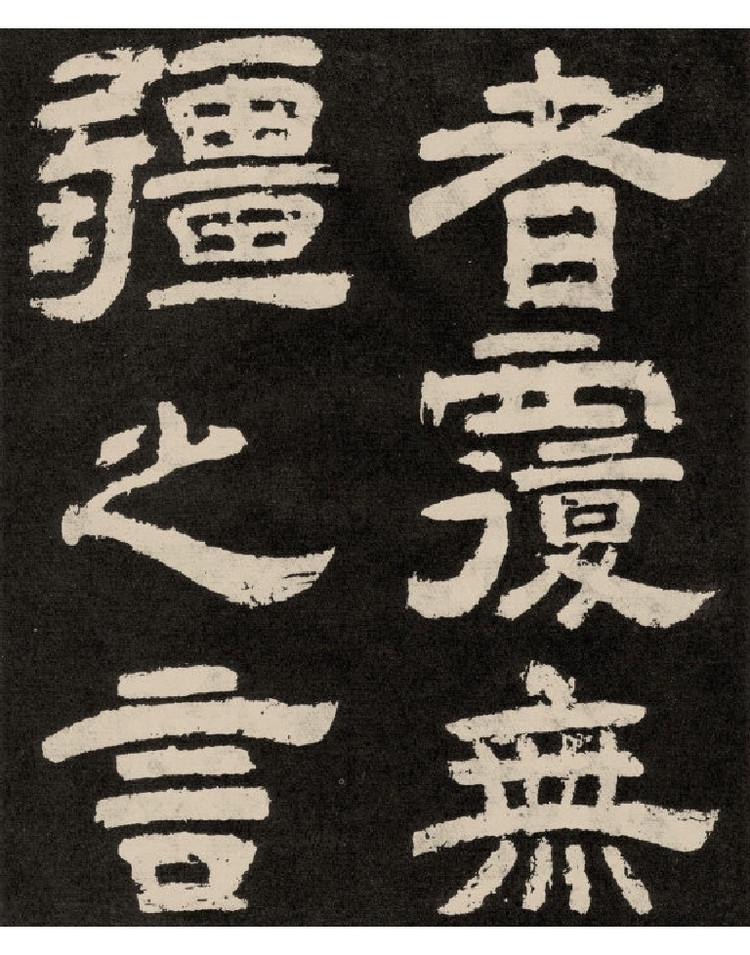 者覆無
疆之言